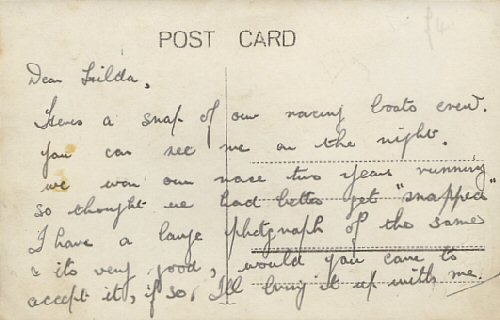 POST CARD
Dear Hilda,
Heres a snap of our racing boats crew.
You can see me on the right.
we won our race two years running
so thought we had better get "snapped"
I have a large photograph of the same
& its very good, would you care to
accept it, if so, I'll bring it up with me.